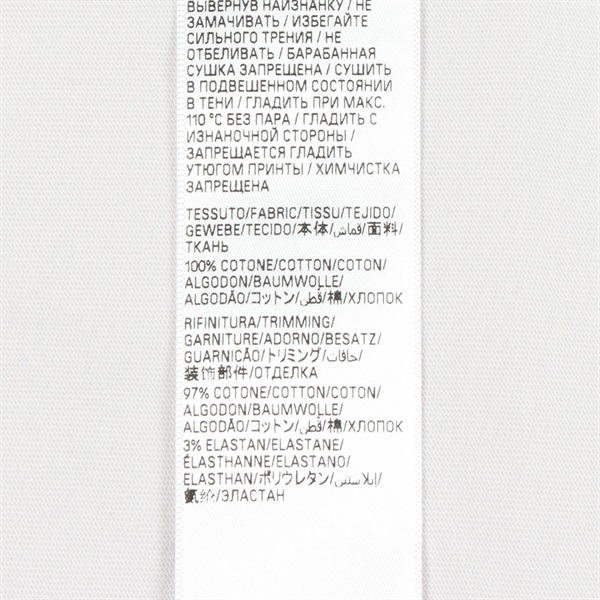 ВЫВЕРНУВ НАИЗНАНКУ / НЕ
ЗАМАЧИВАТЬ / ИЗБЕГАЙТЕ
СИЛЬНОГО ТРЕНИЯ / НЕ
ОТБЕЛИВАТЬ / БАРАБАННАЯ
СУШКА ЗАПРЕЩЕНА / СУШИТЬ
В ПОДВЕШЕННОМ СОСТОЯНИИ
В ТЕНИ / ГЛАДИТЬ ПРИ МАКС.
110 °C БЕЗ ПАРА / ГЛАДИТЬ С
ИЗНАНОЧНОЙ СТОРОНЫ /
ЗАПРЕЩАЕТСЯ ГЛАДИТЬ
УТЮГОМ ПРИНТЫ / ХИМЧИСТКА
ЗАПРЕЩЕНА
TESSUTO/FABRIC/TISSU/TEJIDO/
GEWEBE/TECIDO/本体/قماش/面料/
ТКАНЬ
100% COTONE/COTTON/COTON/
ALGODON/BAUMWOLLE/
ALGODÃO/コットン/قطن/棉/ХЛОПОК
RIFINITURA/TRIMMING/
GARNITURE/ADORNO/BESATZ/
GUARNICÃO/トリミング/حافات/
装饰部件/ОТДЕЛКА
97% COTONE/COTTON/COTON/
ALGODON/BAUMWOLLE/
ALGODÃO/コットン/قطن/棉/ХЛОПОК
3% ELASTAN/ELASTANE/
ÉLASTHANNE/ELASTANO/
ELASTHAN/ポリウレタン/إيلاستين/
氨纶/ЭЛАСТАН